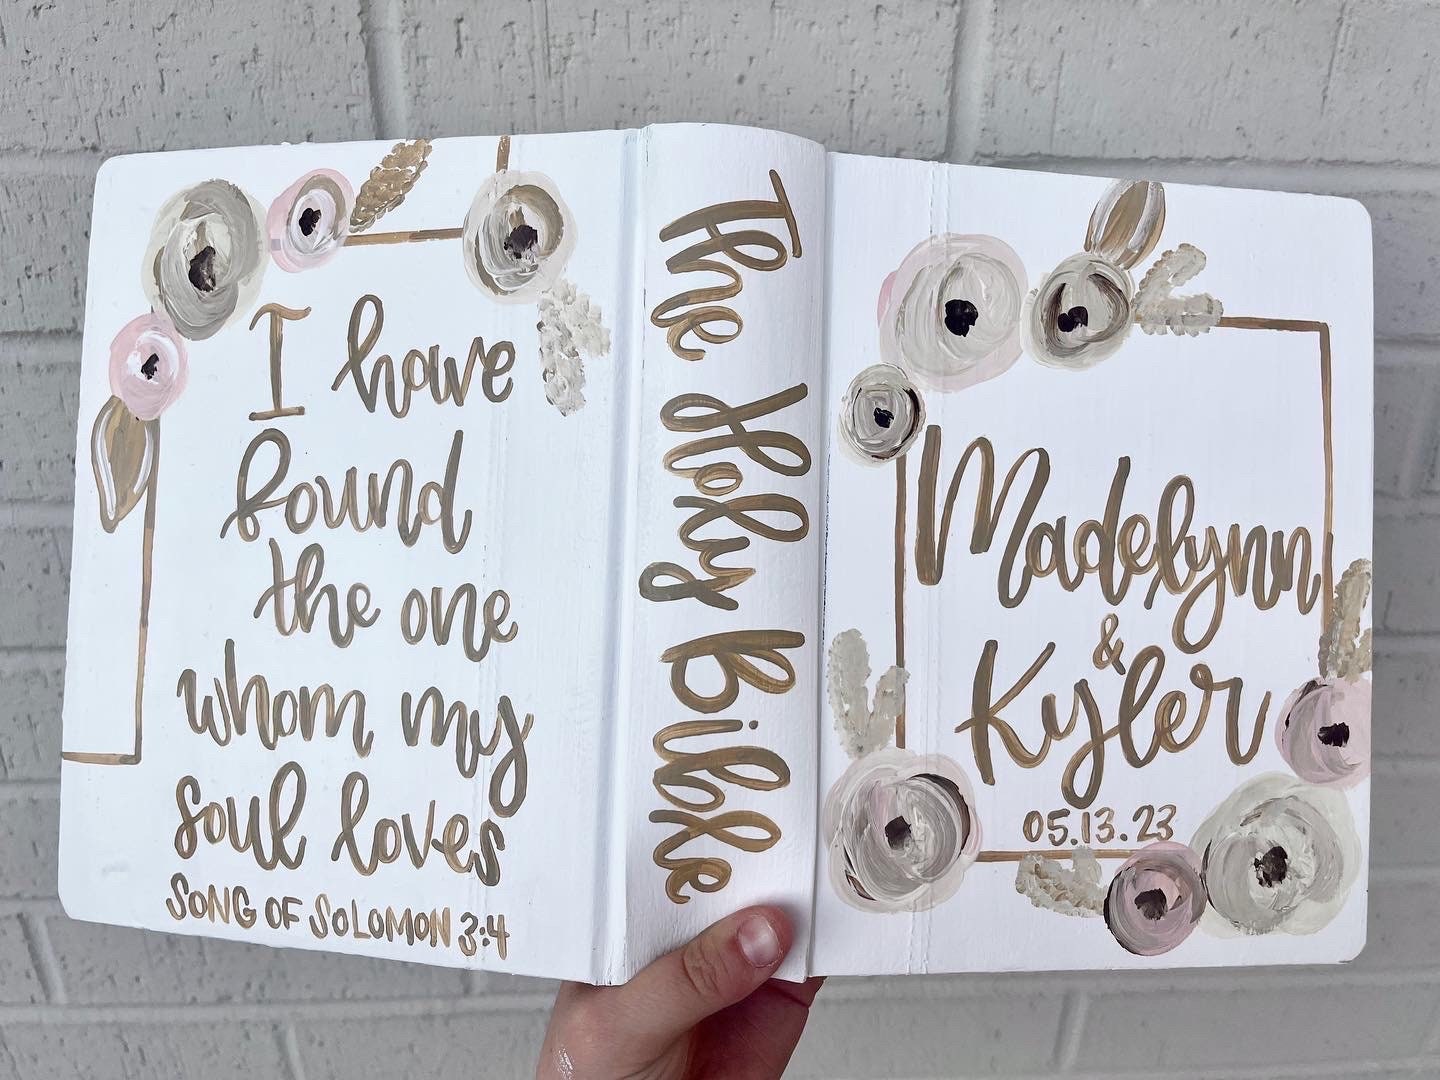 I have
found
the one
whom my
soul loves
SONG OF SOLOMON 3:4
The Holy Bible
Madelynn
&
Kyler
05.13.23